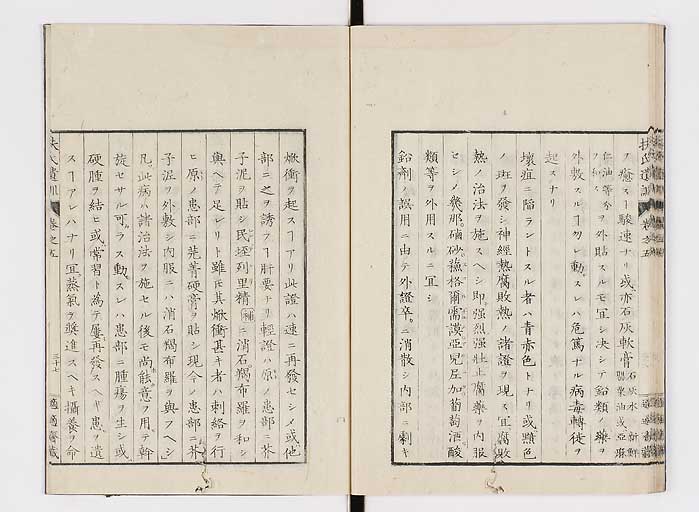 ノ癒スヿ駿速ナリ或ハ亦石灰軟膏
石灰水新鮮
罌粟油或亜麻
仁油等分
ヲ和ス
ヲ外貼スルモ宜シ決シテ鉛類ノ藥ヲ
外敷スルヿ勿レ動スレハ危篤ナル病毒轉徙ヲ
起スナリ
壊疽ニ陥ラントスル者ハ青赤色トナリ或黯色
ノ斑ヲ發シ神經熱腐敗熱ノ諸證ヲ現ス宜腐敗
熱ノ治法ヲ施スヘシ即强烈强壮止腐藥ヲ内服
セシメ幾那磠砂蕪格爾需謨亜兒尼加葡萄酒酸
類等ヲ外用スルニ宜シ
鉛劑ノ誤用ニ由テ外證卒ニ消散シ内部ニ劇キ
焮衝ヲ起スヿアリ此證ハ速ニ再發セシメ或他
部ニ之ヲ誘フヿ肝要ナリ輕證ハ原ノ患部ニ芥
子泥ヲ貼シ民垤列里精
ニ消石羯布羅ヲ和シ
與ヘテ足レリト雖モ其焮衝甚キ者ハ刺絡ヲ行
ヒ原ノ患部ニ芫菁硬膏ヲ貼シ現今ノ患部ニ芥
子泥ヲ外敷シ内服ニハ消石羯布羅ヲ與フヘシ
凡此病ハ諸治法ヲ施セル後モ尚能意ヲ用テ幹
旋セサル可ラス動スレハ患部ニ腫瘍ヲ生シ或
硬腫ヲ結ヒ或常習ト為テ屢再發スヘキ患ヲ遺
スヿアレハナリ宜蒸氣ヲ奬進スヘキ攝養ヲ命
扶氏遺訓
卷之五
三十七
適適齋藏